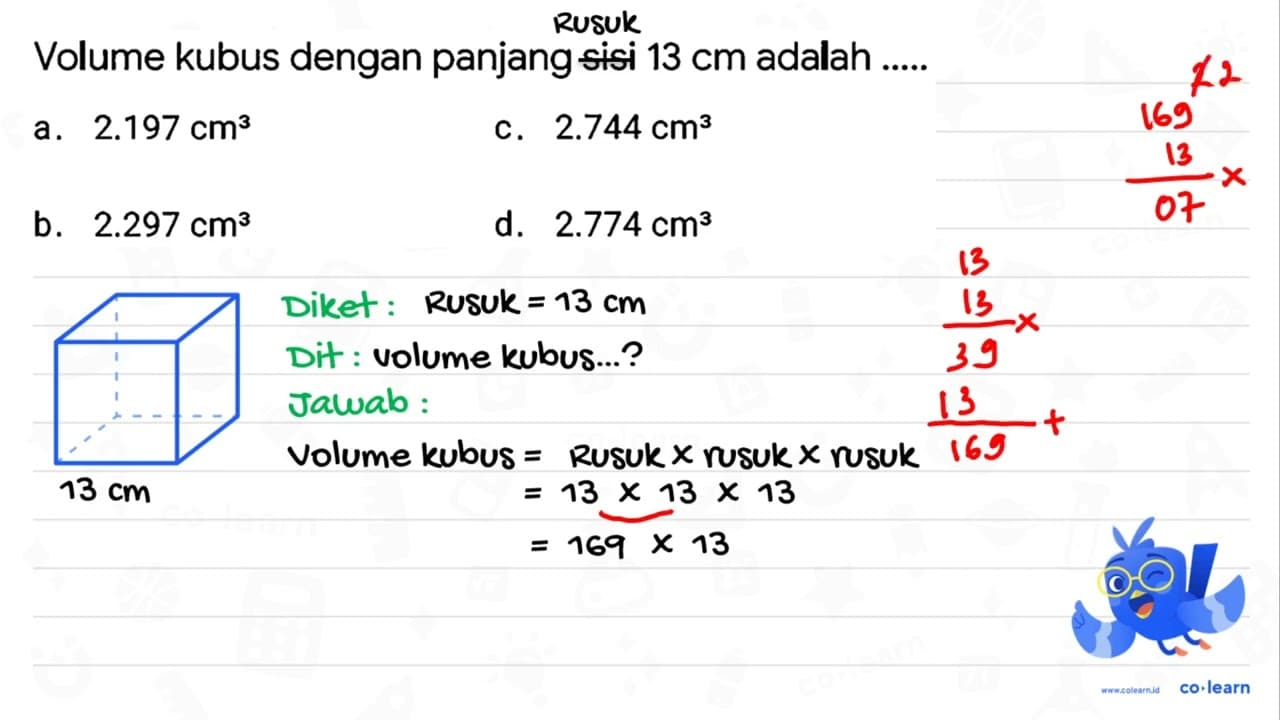 Rusuk
Volume kubus dengan panjang sisi 13 cm adalah .....
a. 2.197 cm³
c. 2.744 cm³
b. 2.297 cm³
d. 2.774 cm³
2
169
13
×
07
13
13
×
39
13
+
169
Diket: Rusuk = 13 cm
Dit: volume kubus...?
Jawab:
Volume kubus = Rusuk × rusuk × rusuk
= 13 × 13 × 13
= 169 × 13
13 cm
www.colearn.id
co·learn